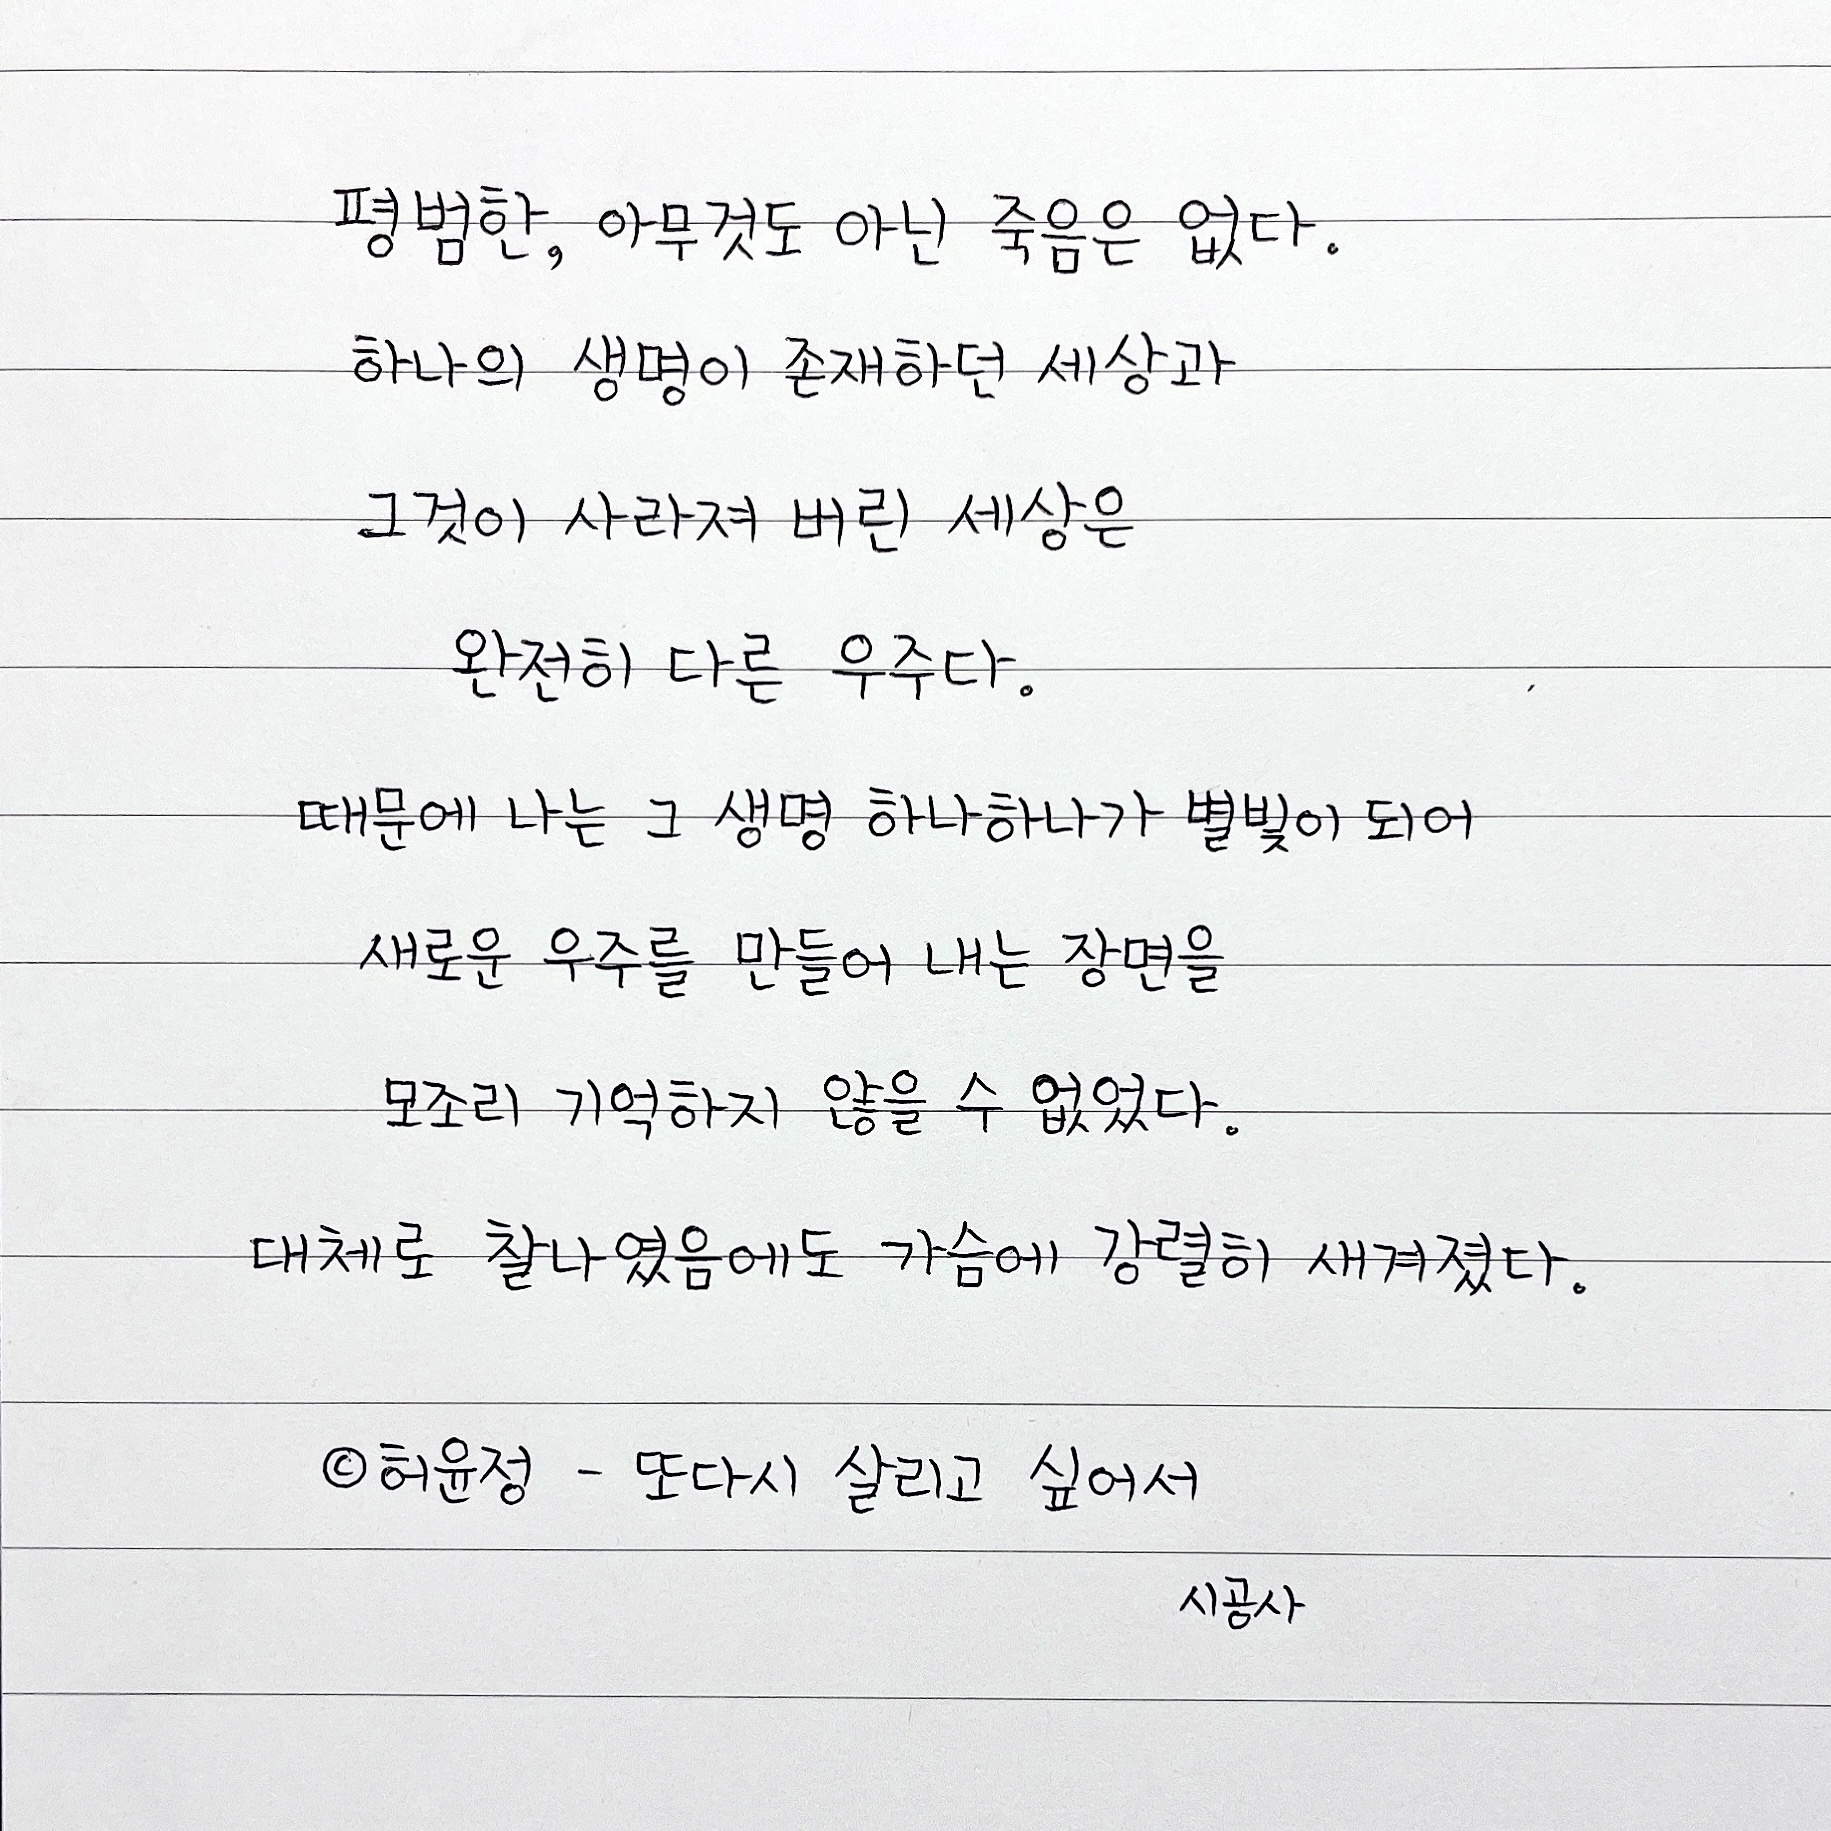 평범한, 아무것도 아닌 죽음은 없다.
하나의 생명이 존재하던 세상과
그것이 사라져 버린 세상은
완전히 다른 우주다.
때문에 나는 그 생명 하나하나가 별빛이 되어
새로운 우주를 만들어 내는 장면을
모조리 기억하지 않을 수 없었다.
대체로 찰나였음에도 가슴에 강렬히 새겨졌다.
©허윤정 - 또다시 살리고 싶어서
시공사